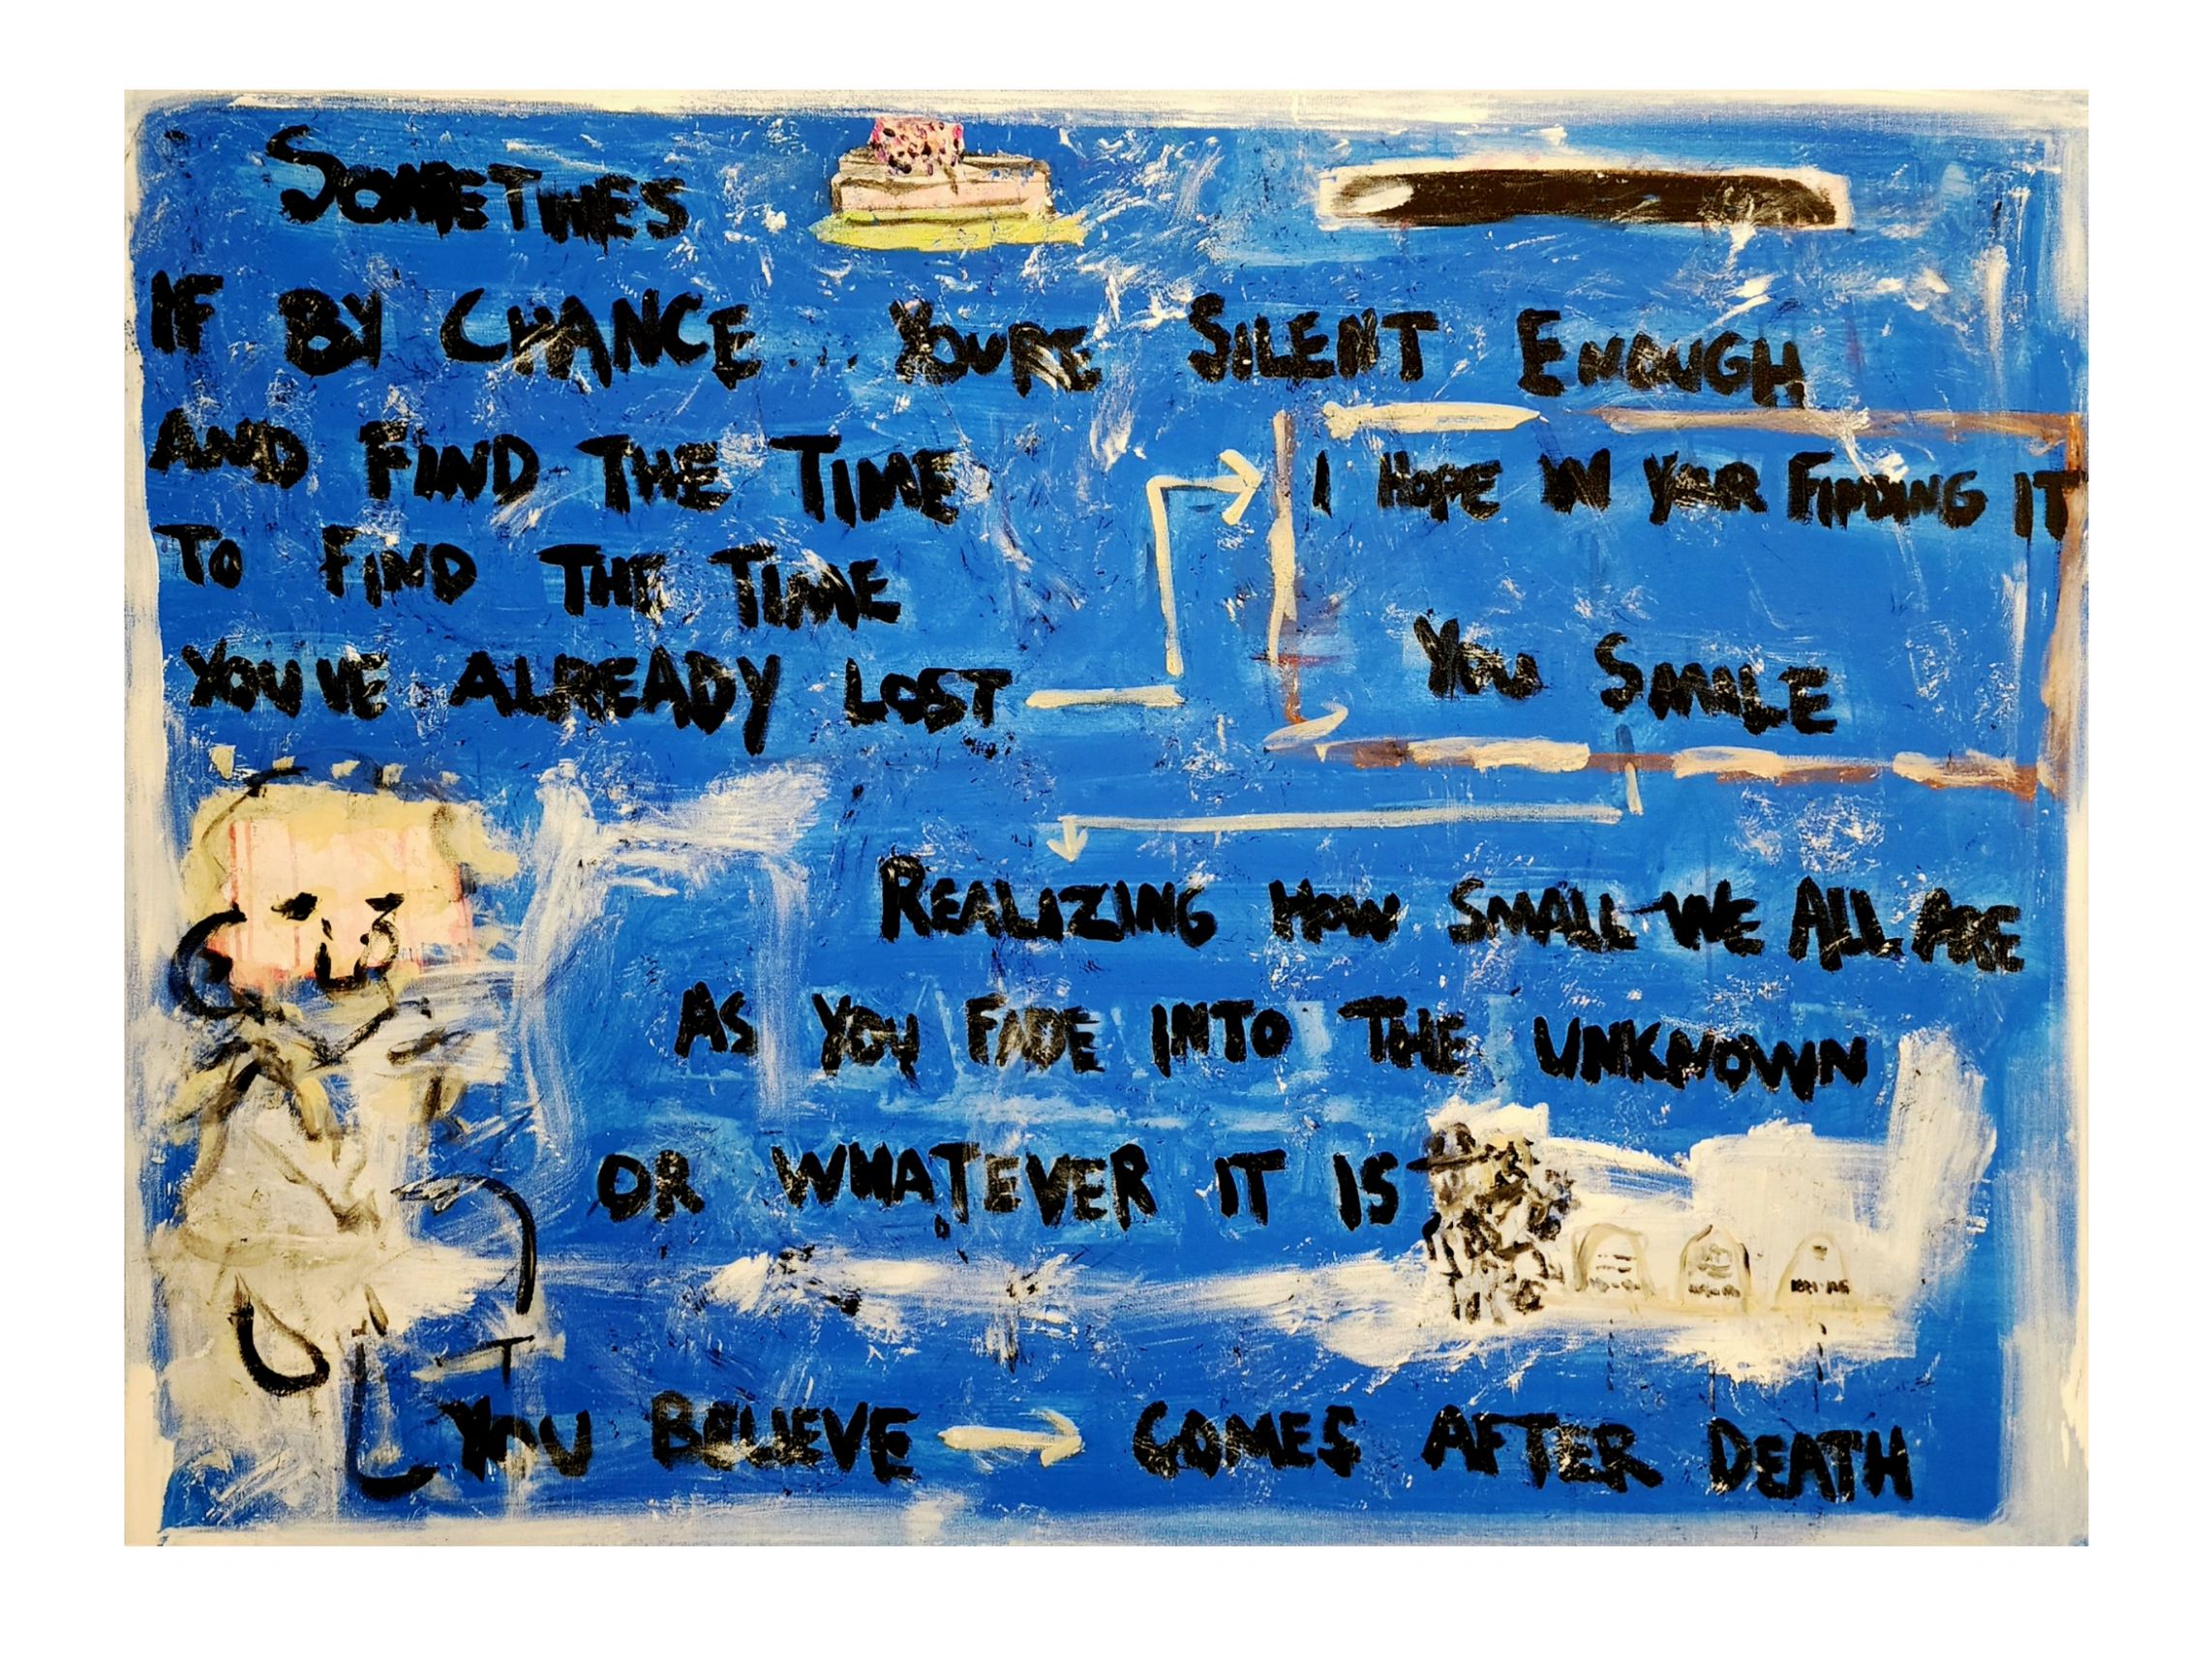 SOMETIMES
IF BY CHANCE.. YOURE SILENT ENOUGH
AND FIND THE TIME
TO FIND THE TIME
YOU'VE ALREADY LOST
I HOPE IN YOUR FINDING IT
YOU SMILE
REALIZING HOW SMALL WE ALL ARE
AS YOU FADE INTO THE UNKNOWN
OR WHATEVER IT IS
YOU BELIEVE → COMES AFTER DEATH